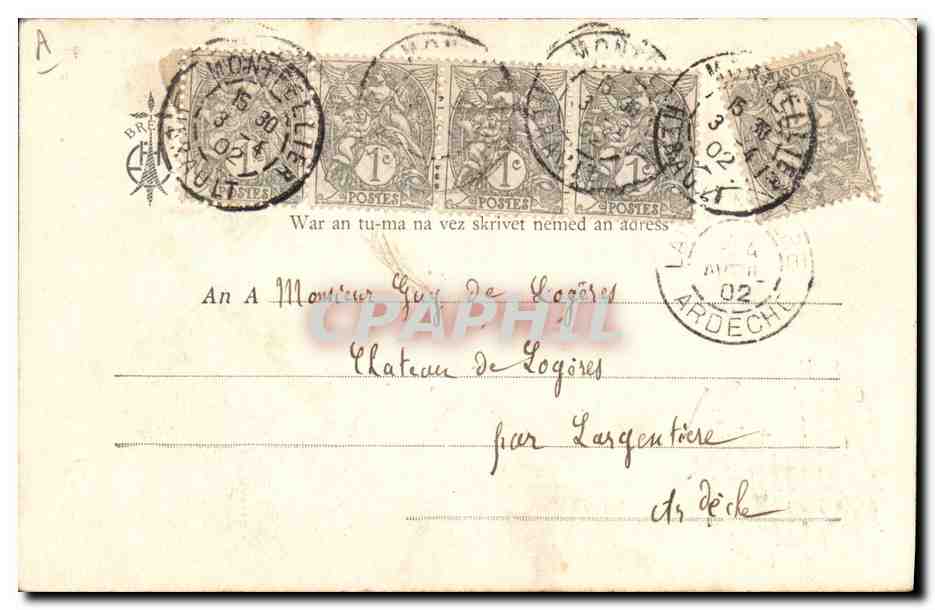 A
MONTPELLIER
15 30
3 - 4
02
HERAULT
MONT
MONT
MONTPELLIER
15 30
3 - 4
02
HERAULT
1c
POSTES
1c
POSTES
1c
POSTES
1c
POSTES
POSTES
BRE
War an tu-ma na vez skrivet nemed an adress
4
02
ARDECHE
An A Monsieur Guy de Logères
CPAPHIL
Chateau de Logères
par Largentière
Ardèche